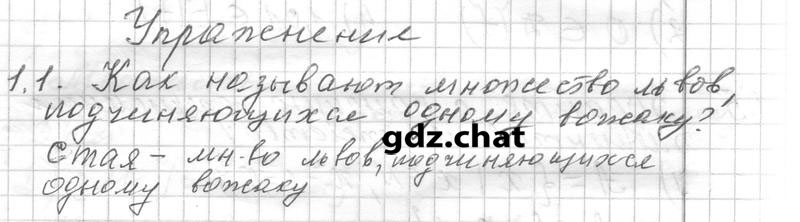 Упражнение
1.1. Как называют множество львов,
подчиняющихся одному вожаку?
gdz.chat
Стая - мн-во львов, подчиняющихся
одному вожаку